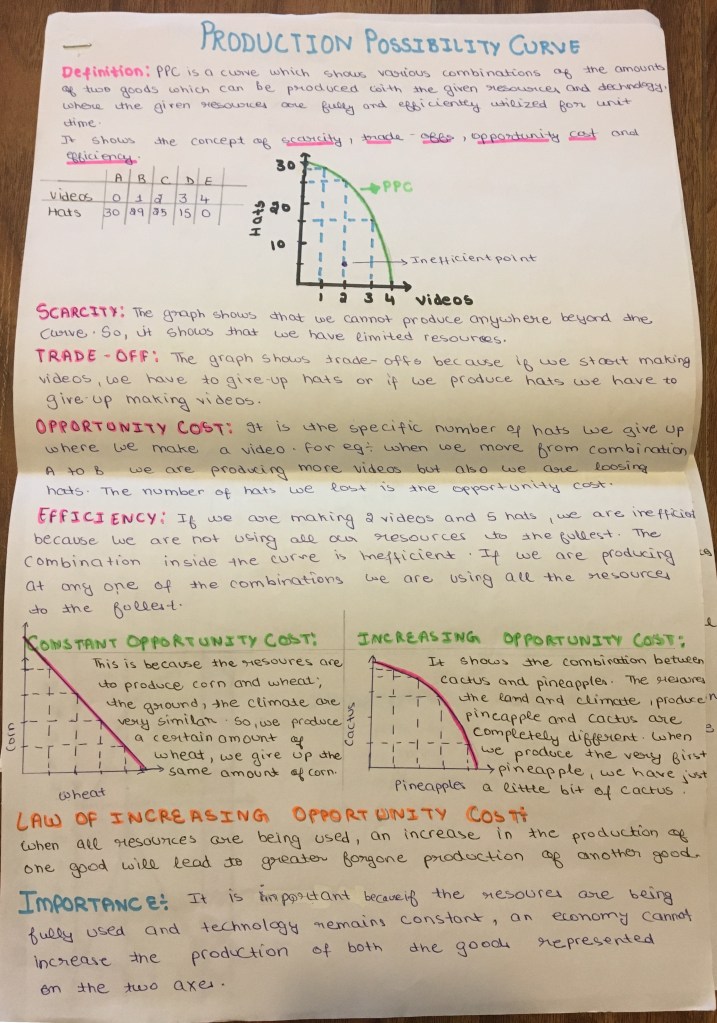 PRODUCTION POSSIBILITY CURVE
Definition: PPC is a curve which shows various combinations of the amounts
of two goods which can be produced with the given resources and technology,
where the given resources are fully and efficiently utilized for unit
time.
It shows the concept of scarcity, trade-offs, opportunity cost and
efficiency.
A B C D E
Videos 0 1 2 3 4
Hats 30 29 25 15 0
30
20
10
Hats
PPC
Inefficient point
1 2 3 4 Videos
SCARCITY: The graph shows that we cannot produce anywhere beyond the
curve. So, it shows that we have limited resources.
TRADE-OFF: The graph shows trade-offs because if we start making
videos, we have to give-up hats or if we produce hats we have to
give-up making videos.
OPPORTUNITY COST: It is the specific number of hats we give up
where we make a video. For eg: when we move from combination
A to B we are producing more videos but also we are loosing
hats. The number of hats we lost is the opportunity cost.
EFFICIENCY: If we are making 2 videos and 5 hats, we are inefficient
because we are not using all our resources to the fullest. The
combination inside the curve is inefficient. If we are producing
at any one of the combinations we are using all the resources
to the fullest.
CONSTANT OPPORTUNITY COST:
This is because the resoures are
to produce corn and wheat;
the ground, the climate are
very similar. So, we produce
a certain amount of
wheat, we give up the
same amount of corn.
Corn
Wheat
INCREASING OPPORTUNITY COST:
It shows the combination between
cactus and pineapples. The
the land and climate, produce
pineapple and cactus are
completely different. When
we produce the very first
pineapple, we have just
a little bit of cactus.
Cactus
Pineapples
LAW OF INCREASING OPPORTUNITY COST:
When all resources are being used, an increase in the production of
one good will lead to greater forgone production of another good.
IMPORTANCE: It is important because if the resoures are being
fully used and technology remains constant, an economy cannot
increase the production of both the goods represented
on the two axes.